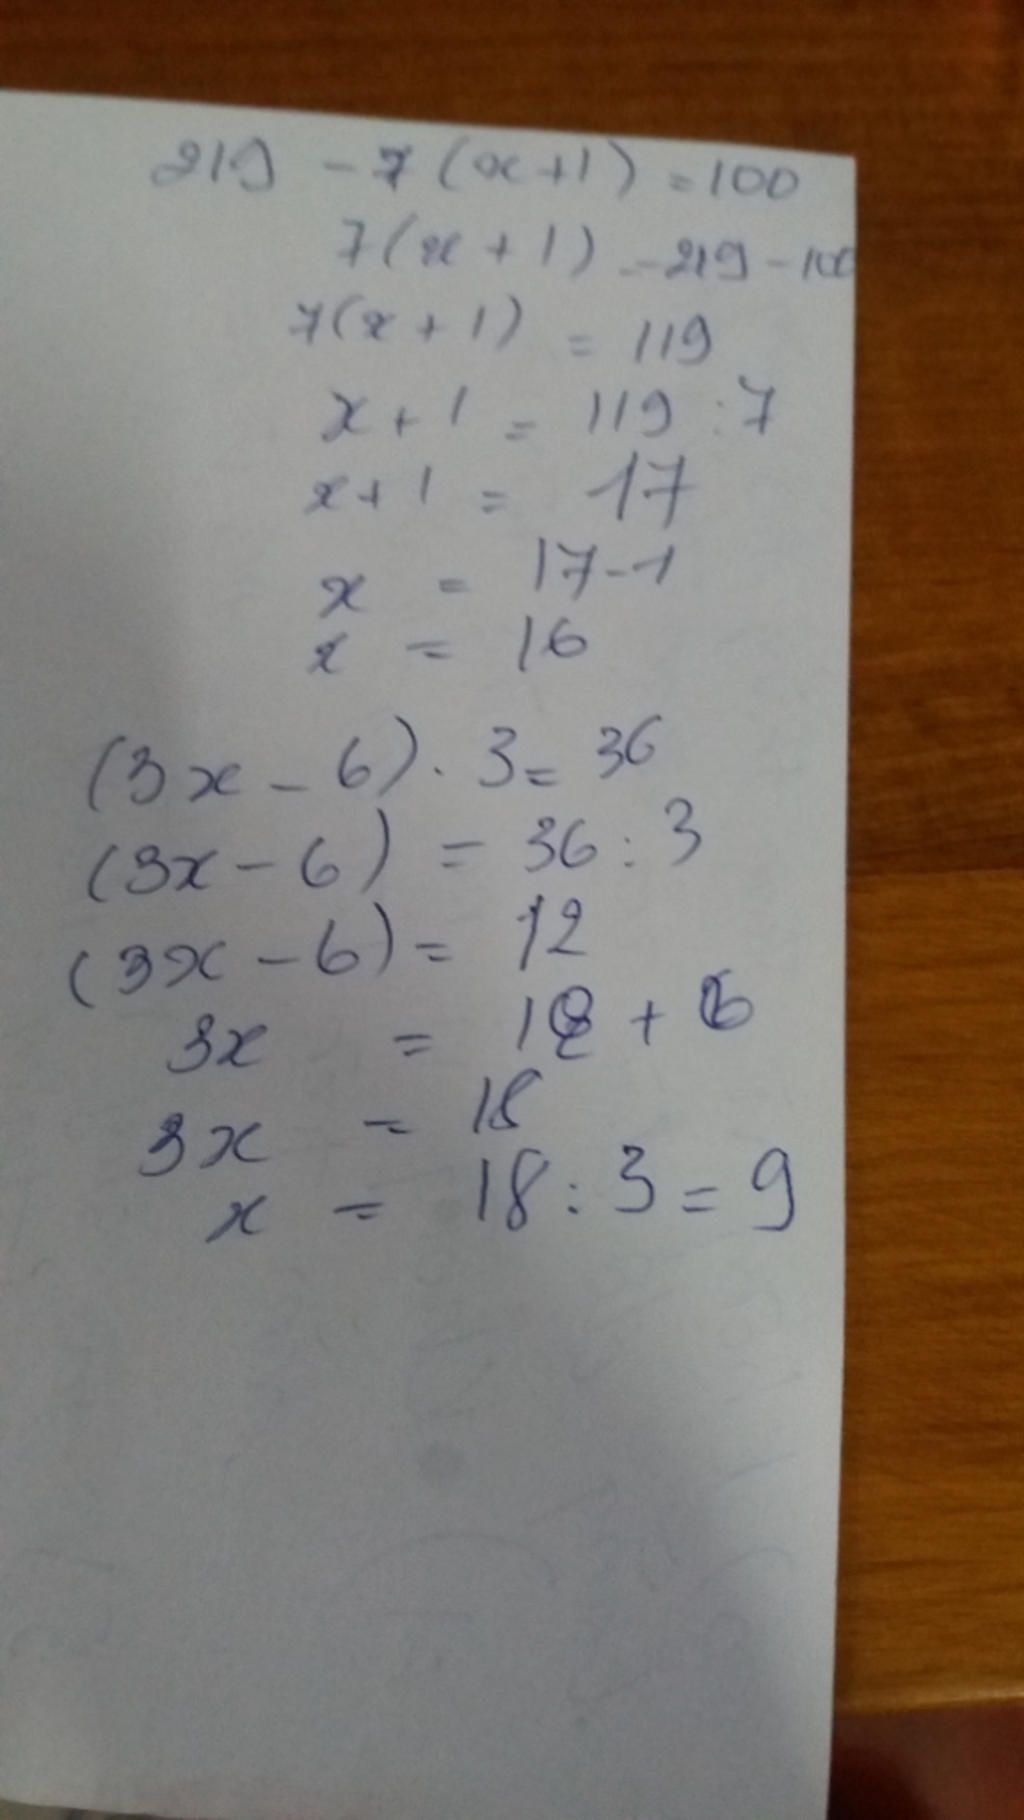 219 - 7(x+1) = 100
7(x + 1) = 219 - 100
7(x + 1) = 119
x + 1 = 119 : 7
x + 1 = 17
x = 17 - 1
x = 16
(3x - 6) . 3 = 36
(3x - 6) = 36 : 3
(3x - 6) = 12
3x = 12 + 6
3x = 18
x = 18 : 3 = 9